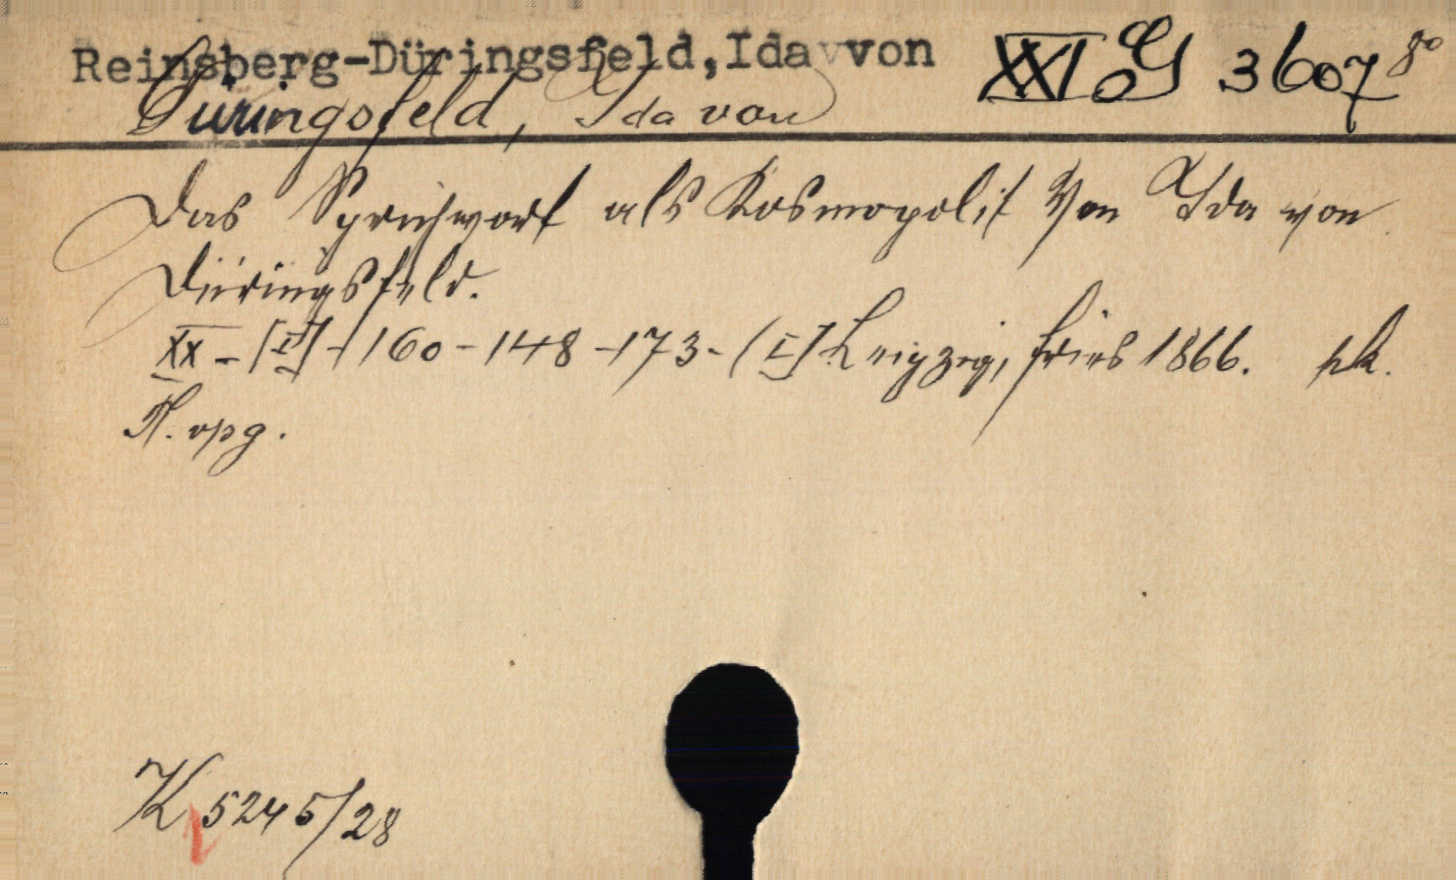 Reinsberg-Düringsfeld, Ida von XXI G 3607 8°
Düringsfeld, Ida von
Das Sprichwort als Kosmopolit Von Ida von
Düringsfeld.
XX - [II] - 160 - 148 - 173 - (I) Leipzig, Fries 1866. pk.
K 5245/28